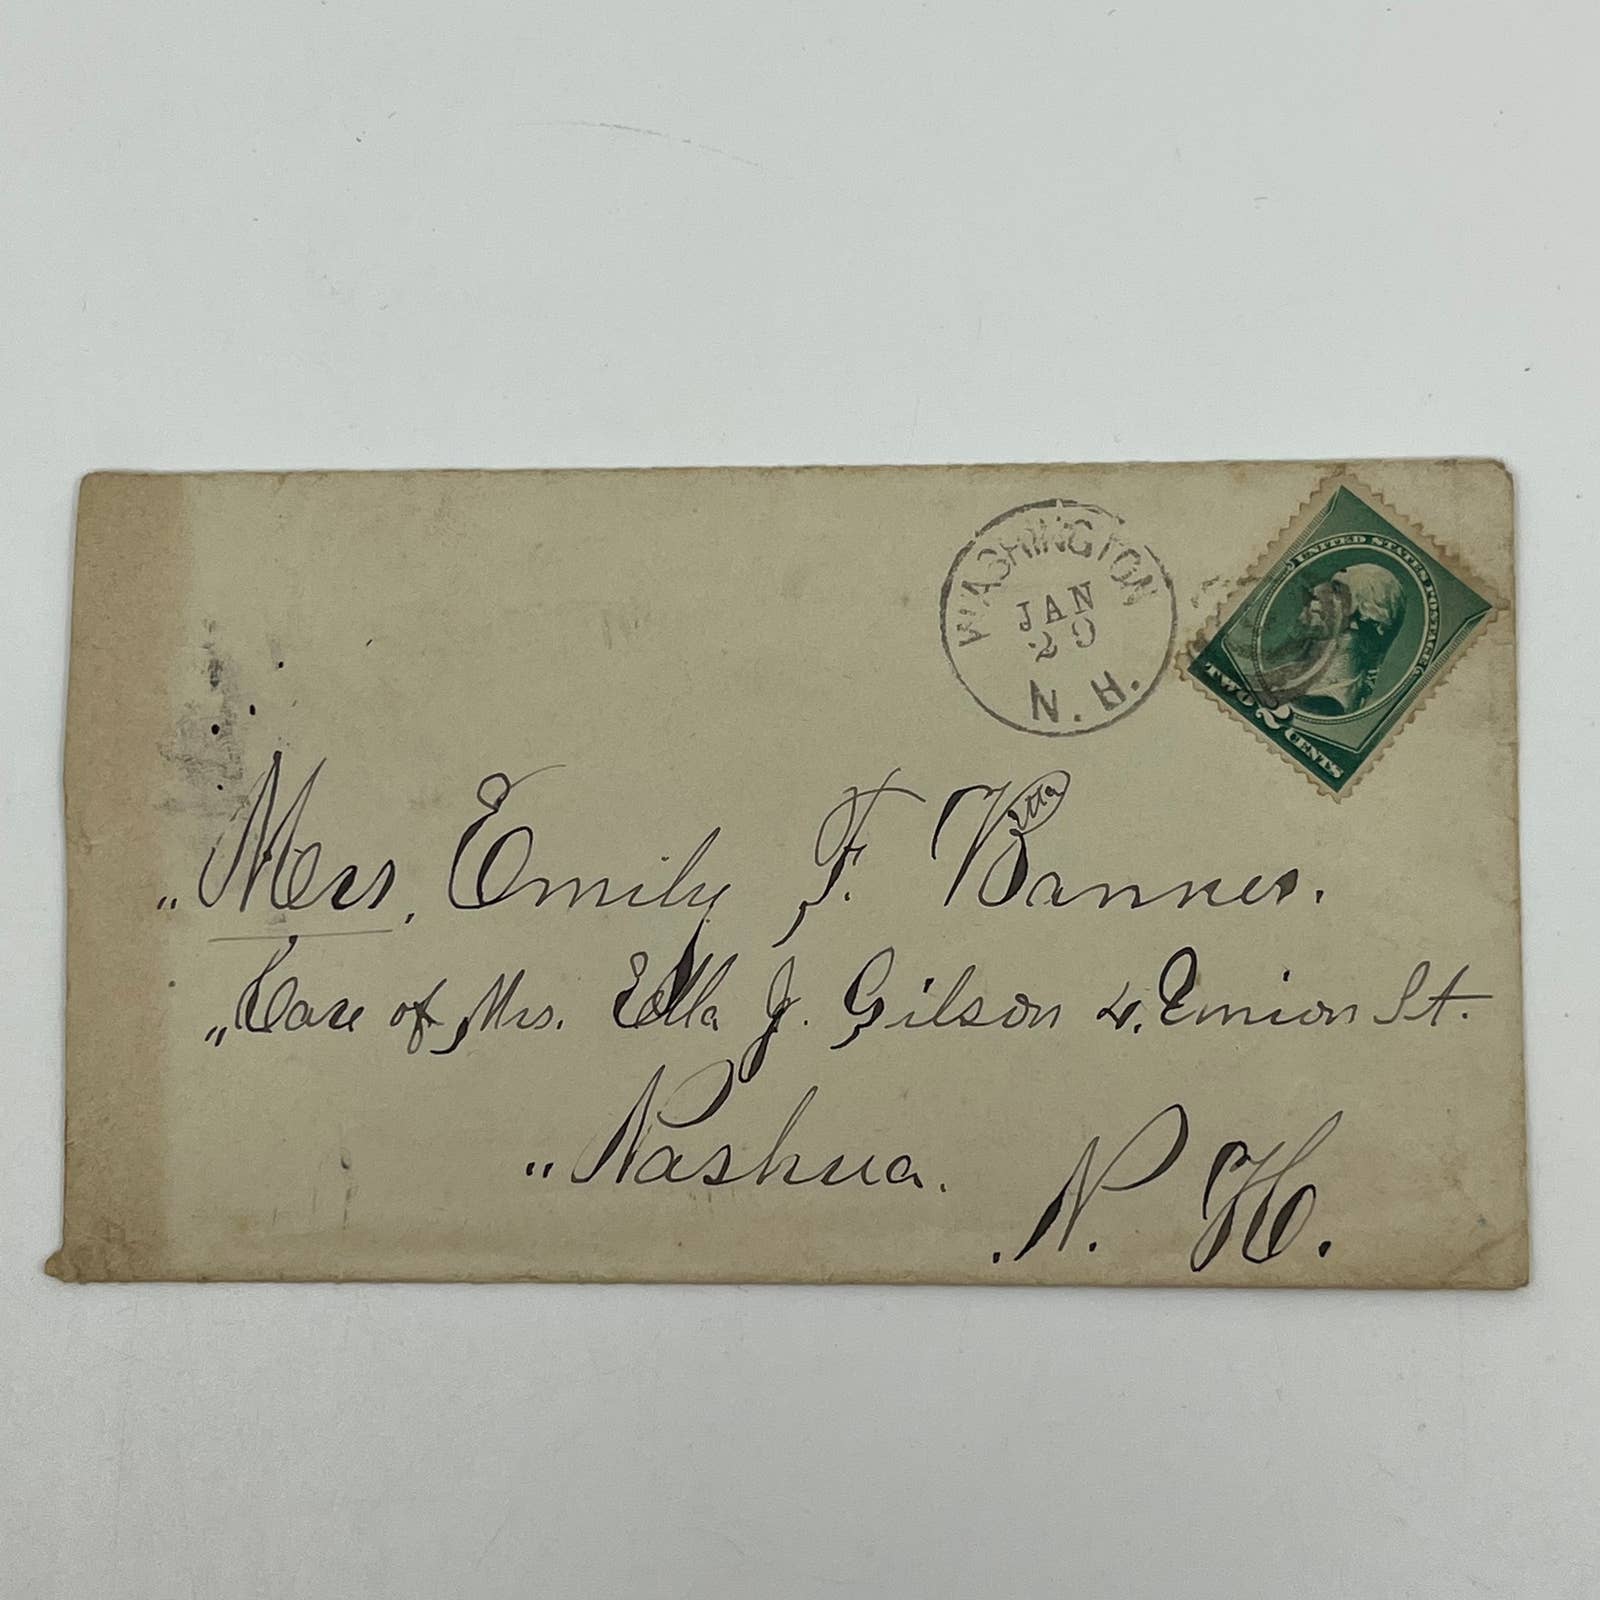 WASHINGTON
JAN
29
N.H.
UNITED STATES POSTAGE
TWO 2 CENTS
„ Mrs. Emily F. Banner.
„ Care of Mrs. Ella J. Gilson 4. Union St.
„ Nashua.
. N. H.